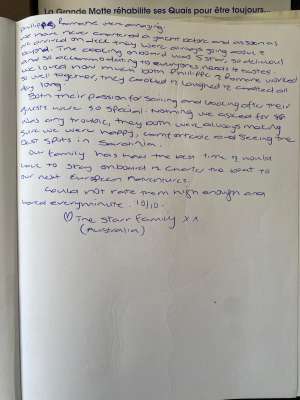 La Grande Motte réhabilite ses Quais pour être toujours...
Philippe, Romane were amazing.
We have never chartered a yacht before and as soon as
we arrived on deck they were always going above &
beyond. The cooking onboard was 5 star, so delicious
and so accommodating to everyones needs & tastes.
We loved how much both Philippe & Romane worked
so well together, they cooked & laughed & chatted all
day long.
Both their passion for sailing and looking after their
guests were so special. Nothing we asked for
was any trouble, they both were always making
sure we were happy, comfortable and seeing the
best spots in Sardinia.
Our family has had the best time & would
love to stay onboard & charter the boat to
our next European Adventure.
Could not rate them high enough and
loved every minute. 10/10.
The Starr Family x x
(Australia)